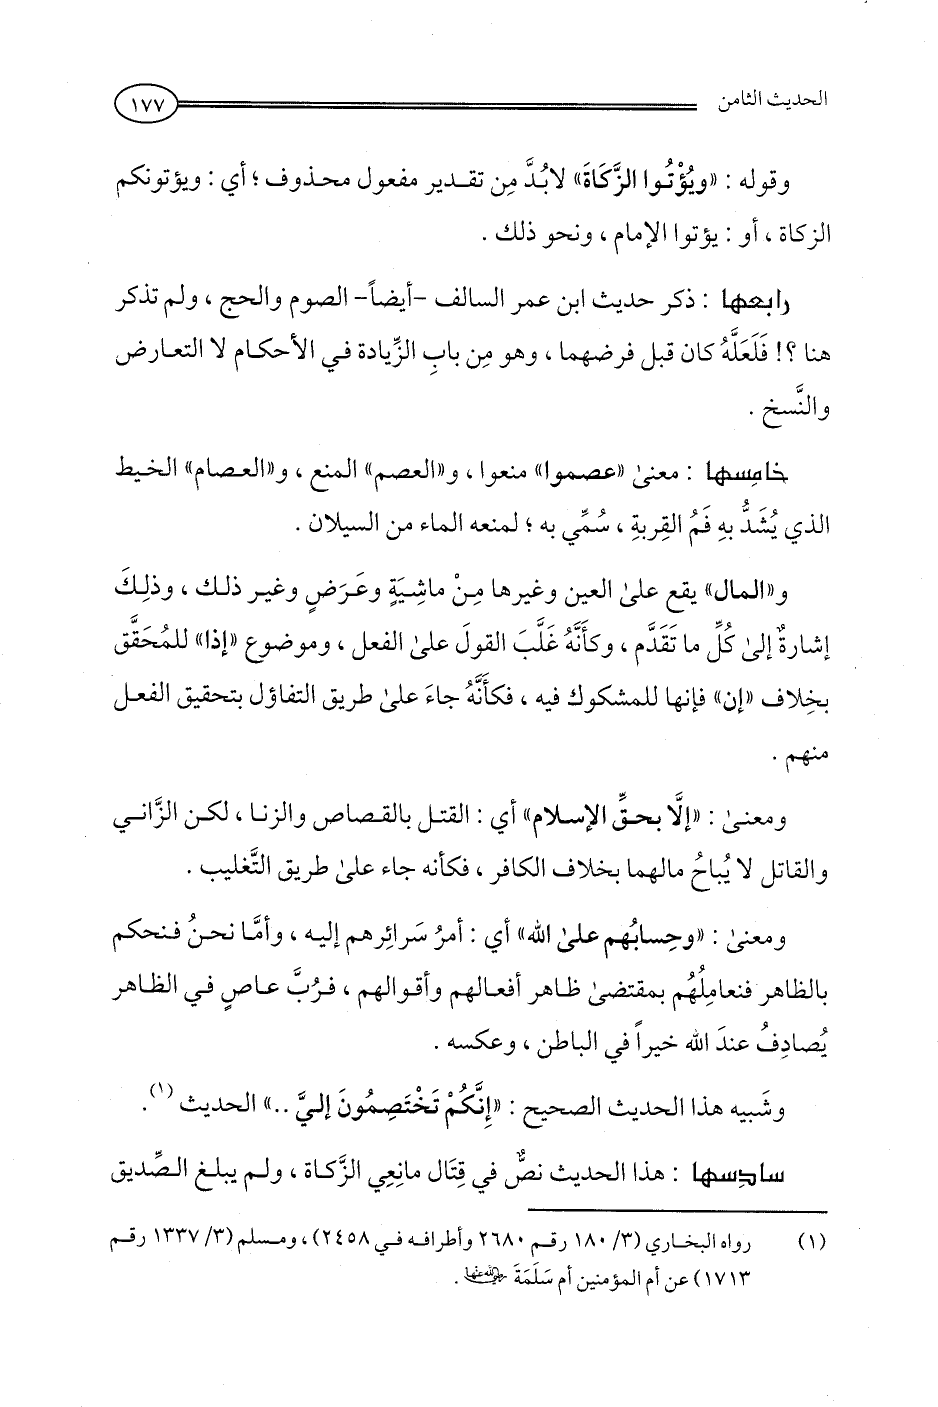 الحديث الثامن ١٧٧
وقوله : «ويُؤْتُوا الزَّكَاةَ» لابُدَّ مِن تقدير مفعول محذوف ؛ أي : ويؤتونكم
الزكاة ، أو : يؤتوا الإمام ، ونحو ذلك .
رابعها : ذكر حديث ابن عمر السالف -أيضاً- الصوم والحج ، ولم تذكر
هنا ؟! فَلَعَلَّهُ كان قبل فرضهما ، وهو مِن بابِ الزِّيادة في الأحكام لا التعارض
والنَّسخ .
خامسها : معنىٰ «عصموا» منعوا ، و«العصم» المنع ، و«العصام» الخيط
الذي يُشَدُّ بهِ فَمُ القِربةِ ، سُمِّي به ؛ لمنعه الماء من السيلان .
و«المال» يقع علىٰ العين وغيرها مِنْ ماشِيَةٍ وعَرَضٍ وغير ذلك ، وذلِكَ
إشارةٌ إلىٰ كُلِّ ما تَقَدَّم ، وكأنَّهُ غَلَّبَ القولَ علىٰ الفعل ، وموضوع «إذا» للمُحَقَّق
بخِلاف «إن» فإنها للمشكوك فيه ، فكأنَّهُ جاءَ علىٰ طريق التفاؤل بتحقيق الفعل
منهم .
ومعنىٰ : «إلَّا بحقِّ الإسلام» أي : القتل بالقصاص والزنا ، لكن الزَّاني
والقاتل لا يُباحُ مالهما بخلاف الكافر ، فكأنه جاء علىٰ طريق التَّغليب .
ومعنىٰ : «وحِسابُهم علىٰ الله» أي : أمرُ سَرائِرهم إليه ، وأمَّا نحنُ فنحكم
بالظاهر فنعامِلُهُم بمقتضىٰ ظاهر أفعالهم وأقوالهم ، فرُبَّ عاصٍ في الظاهر
يُصادِفُ عندَ الله خيراً في الباطن ، وعكسه .
وشَبيه هذا الحديث الصحيح : «إِنَّكُمْ تَخْتَصِمُونَ إليَّ ..» الحديث (١).
سادسها : هذا الحديث نصٌّ في قِتَال مانِعِي الزَّكاة ، ولم يبلغ الصِّديق
(١) رواه البخاري (٣/ ١٨٠ رقم ٢٦٨٠ وأطرافه في ٢٤٥٨)، ومسلم (٣/ ١٣٣٧ رقم
١٧١٣) عن أم المؤمنين أم سَلَمَةَ رضي الله عنها .